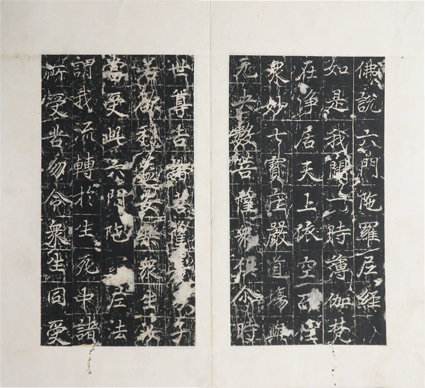 佛說六門陁羅尼經
如是我聞一時薄伽梵
在淨居天上依空而住
眾妙七寶莊嚴道場與
无央數菩薩眾俱尒時
世尊告諸菩薩善男子
若欲利益安樂眾生
當受此六門陁羅尼法
謂我流轉於生死中諸
所受苦勿令眾生同受